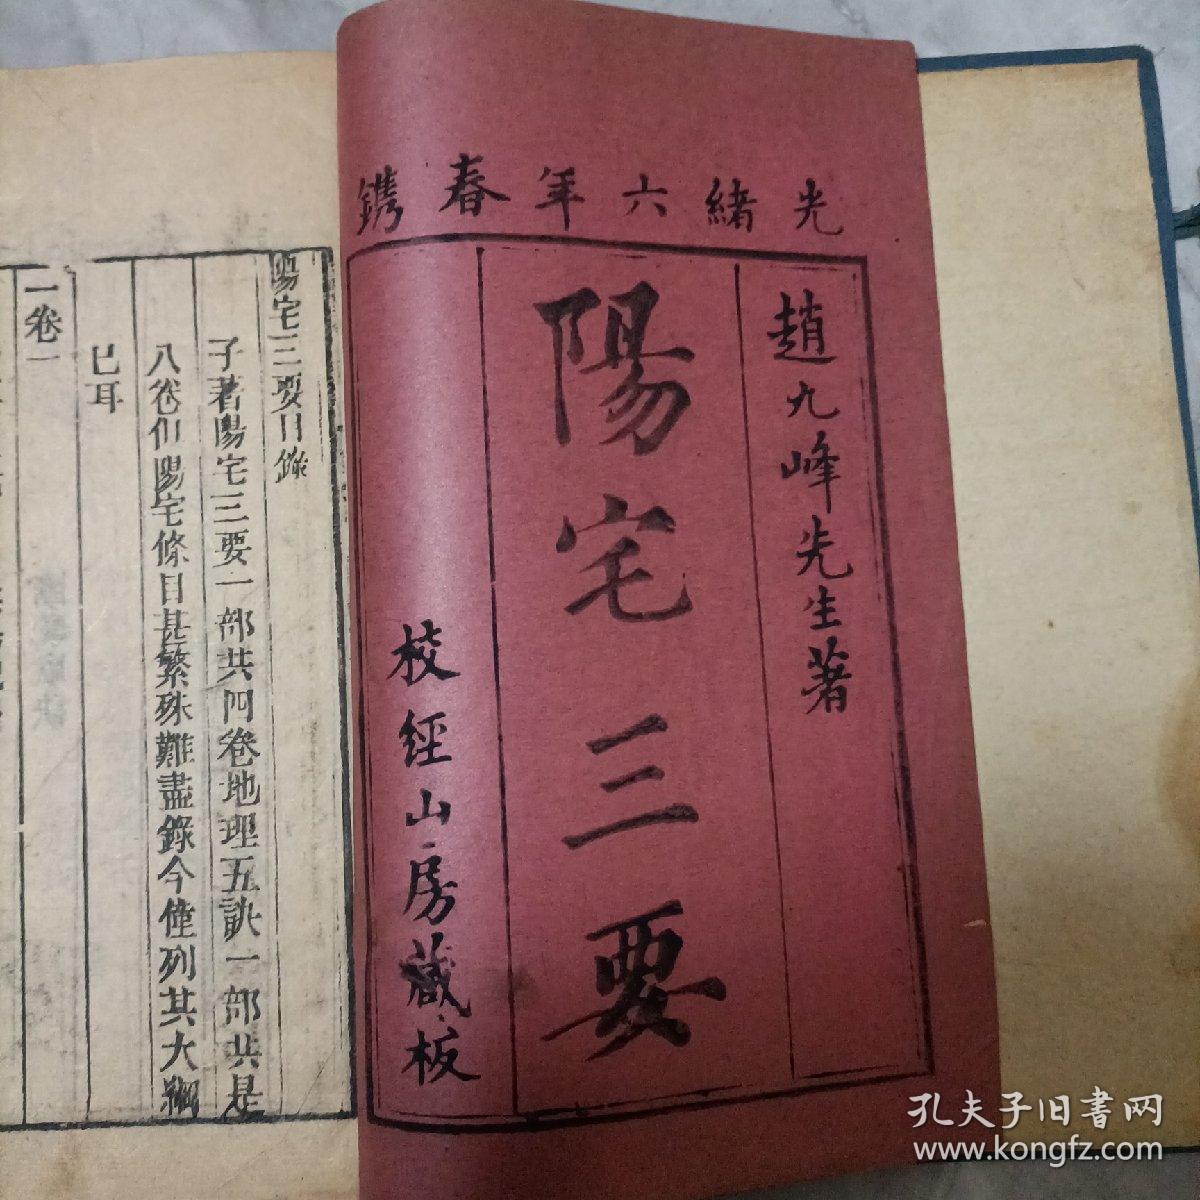 光緒六年春鐫
趙九峰先生著
陽宅三要
校經山房藏板
陽宅三要目錄
子著陽宅三要一部共四卷地理五訣一部共是
八卷但陽宅條目甚繁殊難盡錄今僅列其大綱
已耳
一卷一
孔夫子旧書网
www.kongfz.com